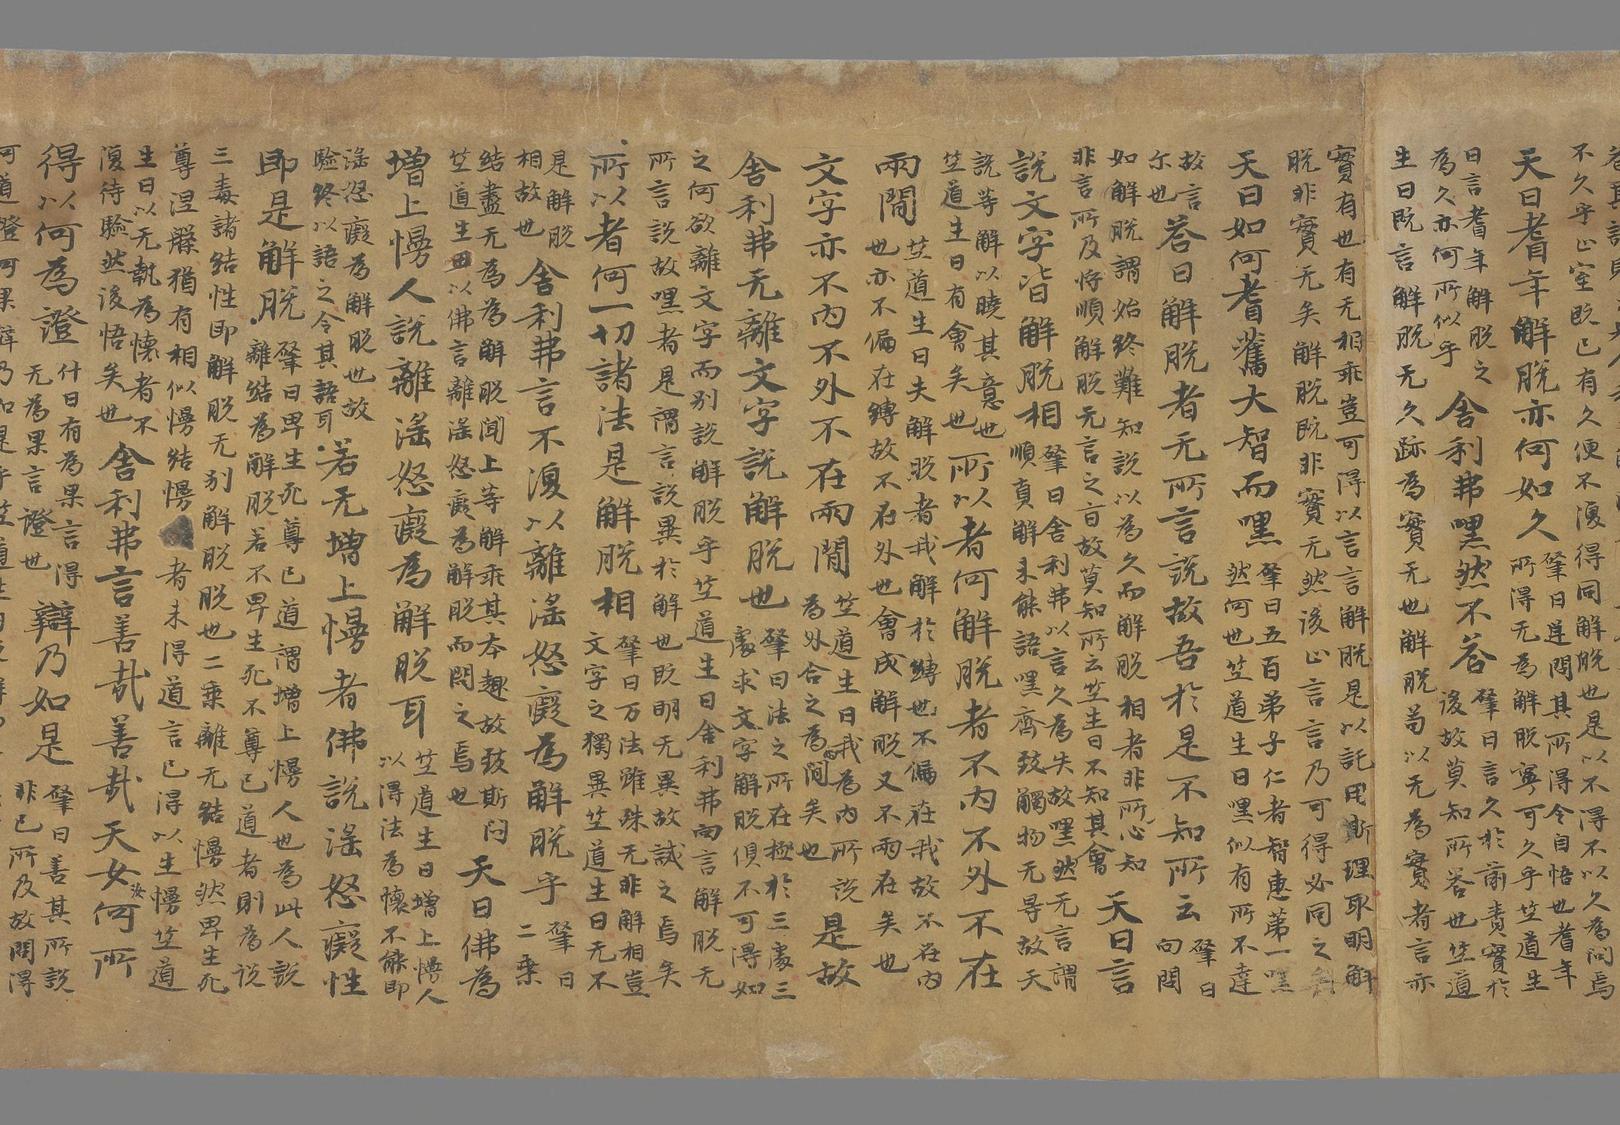 不久乎止室既已有久便不復得同解脫也是以不得不以久為問焉
天曰耆年解脫亦何如久
肇曰逆問其所得令自悟也耆年
所得无為解脫寧可久乎竺道生
曰言耆年解脫之
為久亦何所似乎
舍利弗嘿然不答
肇曰言久於前責實於
後故莫知所答也竺道
生曰既言解脫无久跡為實无也解脫苟以无為實者言亦
實有也有无相乖豈可得以言言解脫是以託用斯理取明解
脫非實无矣解脫既非實无然後止言言乃可得必同之
天曰如何耆舊大智而嘿
肇曰五百弟子仁者智惠第一嘿
然何也竺道生曰嘿似有所不達
故言
尔也
答曰解脫者无所言說故吾於是不知所云
肇曰
向問
如解脫謂始終難知說以為久而解脫相者非所心知
非言所及將順解脫无言之旨故莫知所云竺生曰不知其會
天曰言
說文字皆解脫相
肇曰舍利弗以言久為失故嘿然无言謂
順真解未能語嘿齊致觸物无㝵故天
說等解以曉其意也
竺道生曰有會矣也
所以者何解脫者不內不外不在
兩間
竺道生曰夫解脫者我解於縛也不偏在我故不在內
也亦不偏在縛故不在外也會成解脫又不兩在矣也
文字亦不內不外不在兩間
竺道生曰我為內所說
為外合之為間矣也
是故
舍利弗无離文字說解脫也
肇曰法之所在極於三處三
處求文字解脫俱不可得如
之何欲離文字而別說解脫乎竺道生曰舍利弗向言解脫无
所言說故嘿者是謂言說異於解也既明无異故誡之焉矣
所以者何一切諸法是解脫相
肇曰万法雖殊无非解相豈
文字之獨異竺道生曰无不
是解脫
相故也
舍利弗言不復以離淫怒癡為解脫乎
肇曰
二乘
結盡无為為解脫聞上等解乖其本趣故致斯問
竺道生曰以佛言離淫怒癡為解脫而問之焉也
天曰佛為
增上慢人說離淫怒癡為解脫耳
竺道生曰增上慢人
以得法為懷不能即
淫怒癡為解脫也故
驗終以語之令其語耳
若无增上慢者佛說淫怒癡性
即是解脫
肇曰卑生死尊己道謂增上慢人也為此人說
離結為解脫若不卑生死不尊己道者則為說
三毒諸結性即解脫无別解脫也二乘離无結慢然卑生死
尊涅槃猶有相似慢結慢者未得道言已得以生慢竺道
生曰以无執為懷者不
復待驗然後悟矣也
舍利弗言善哉善哉天女汝何所
得以何為證
什曰有為果言得
无為果言證也
辯乃如是
肇曰善其所說
非己所及故問得